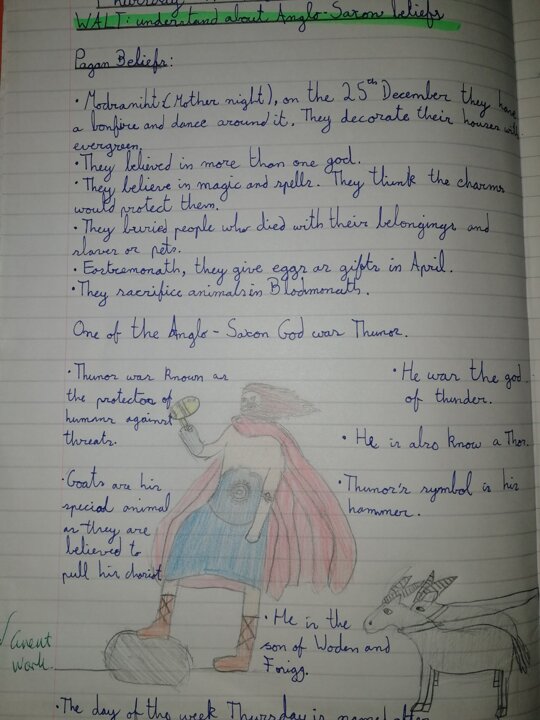 WALT: understand about Anglo-Saxon beliefs
Pagan Beliefs:
• Modraniht (Mother night), on the 25th December they have
a bonfire and dance around it. They decorate their houses with
evergreen.
• They believed in more than one god.
• They believe in magic and spells. They think the charms
would protect them.
• They buried people who died with their belongings and
slaves or pets.
• Eostremonath, they give eggs as gifts in April.
• They sacrifice animals in Blodmonath.
One of the Anglo-Saxon God was Thunor.
• Thunor was known as
the protector of
humans against
threats.
• Goats are his
special animal
as they are
believed to
pull his choriot
• He was the god
of thunder.
• He is also know a Thor.
• Thunor's symbol is his
hammer.
• He is the
son of Woden and
Frigg.
Great
work
• The day of the week Thursday is named after